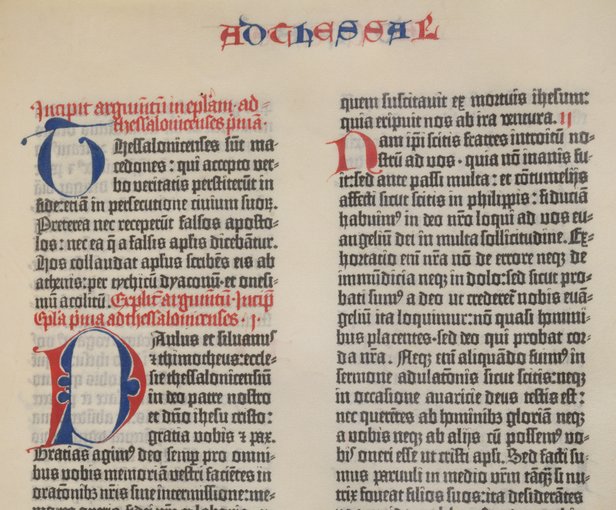 AD THESSAL
Incipit argumentū in epl̄am · ad ‑
thessalonicenses p̄ma ·
Thessalonicenses sūt ma‑
cedones : qui accepto ver‑
bo veritatis perstiterūt in
fide: etiā in persecutione civium suoꝝ.
Preterea nec receperūt falsos aposto‑
los : nec ea q̄ a falsis apl̄is dicebātur.
Hos collaudat apl̄us scribēs eis ab
athenis: per tychicū dyaconū · et onesi‑
mū acolitū. Explic̄ argumētū · Incip̄
Epl̄a p̄ma ad thessalonicenses · I ·
Paulus et siluanꝰ
⁊ thimotheus: eccle‑
sie thessalonicensiū
in deo patre nostro
et dn̄o ihesu cristo:
gratia vobis ⁊ pax.
Gratias agimꝰ deo semp̄ pro omni‑
bus vobis memoriā vestri faciētes in
orationibꝫ nr̄is sine intermissione: me‑
quem suscitauit ex mortuis ihesum:
quia eripuit nos ab ira ventura. II
Nam ip̄i scitis fratres introitū no‑
strū ad vos · quia nō inanis fu‑
it: sed ante passi multa : et cōtumelijs
affecti sicut scitis in philippis : fiduciā
habuimꝰ in deo nr̄o loqui ad vos eu‑
angeliū dei in multa sollicitudine. Ex‑
hortatio eni nr̄a nō de errore neqꝫ de
immūdicia neqꝫ in dolo: sed sicut pro‑
bati sumꝰ a deo ut crederet̄ nobis euā‑
geliū ita loquimur: nō quasi homini‑
bus placentes · sed deo qui probat cor‑
da nr̄a. Neqꝫ eni aliquādo fuimꝰ in
sermone adulatōnis sicut scitis: neqꝫ
in occasione avaricie deus testis est:
nec querētes ab hominibꝫ gloriā neqꝫ
a vobis neqꝫ ab alijs cū possemꝰ vo‑
bis oneri esse ut cristi apl̄i. Sed facti su‑
mus paruuli in medio vr̄m tāqꝫ si nu‑
trix foueat filios suos: ita desiderātes